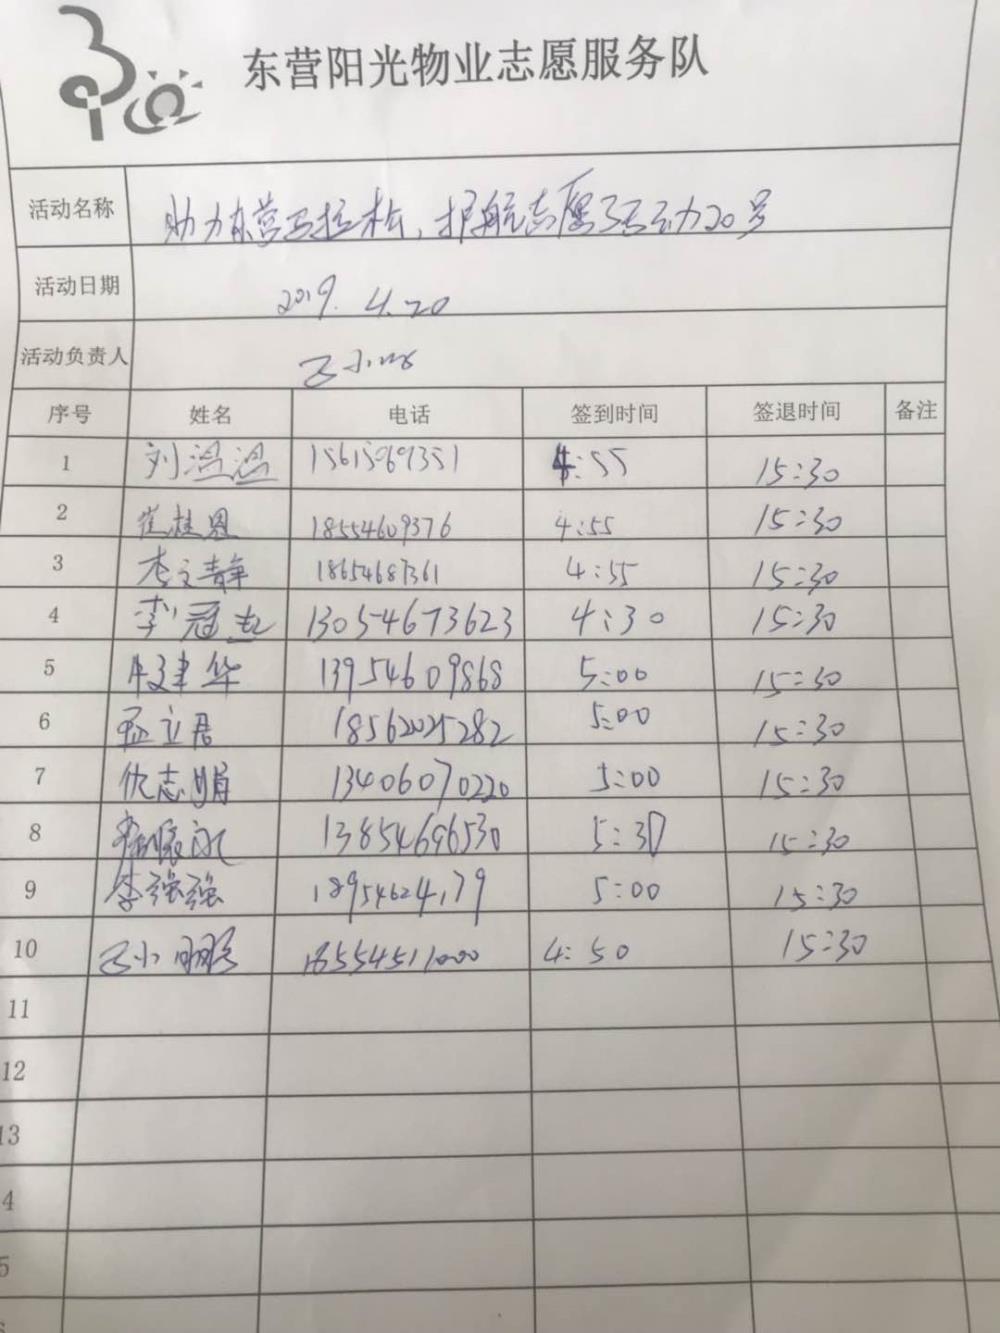 东营阳光物业志愿服务队
活动名称 助力东营马拉松、护航志愿活动20号
活动日期 2019.4.20
活动负责人 小
序号 姓名 电话 签到时间 签退时间 备注
1 刘温温 15615969351 4:55 15:30
2 崔桂恩 18554609376 4:55 15:30
3 李文静 18654687361 4:55 15:30
4 李冠 13054673623 4:30 15:30
5 建华 13954609868 5:00 15:30
6 立君 18562025282 5:00 15:30
7 志娟 13406070220 5:00 15:30
8 13854696530 5:30 15:30
9 李强强 5:00 15:30
10 小鹏 18554511000 4:50 15:30
11
12
13
4
5